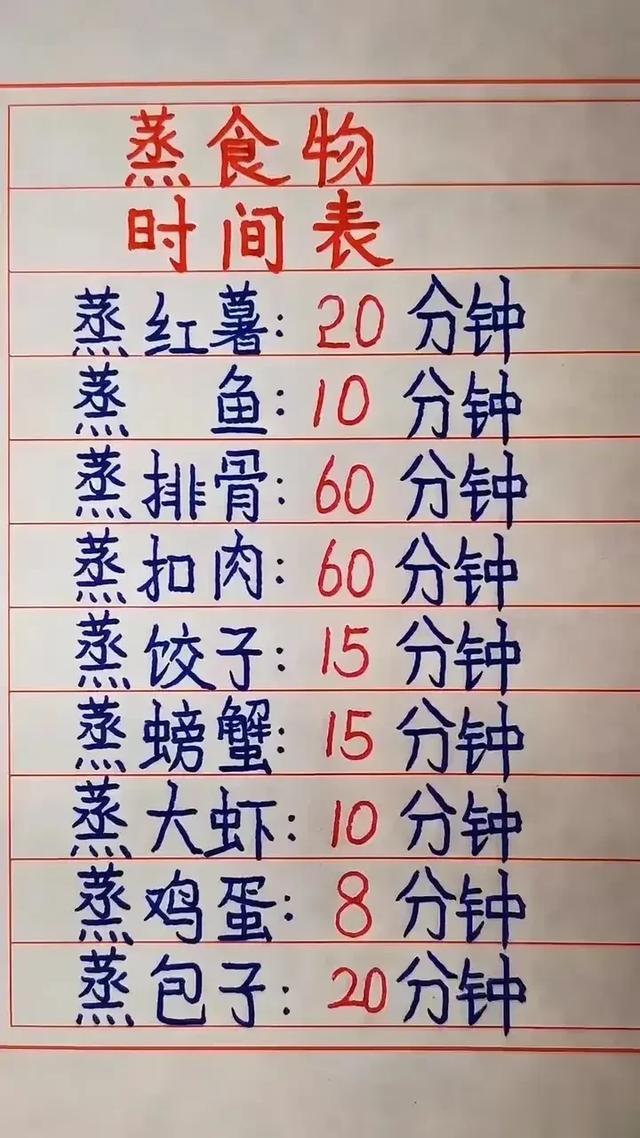 蒸食物
时间表
蒸红薯：20分钟
蒸 鱼：10分钟
蒸排骨：60分钟
蒸扣肉：60分钟
蒸饺子：15分钟
蒸螃蟹：15分钟
蒸大虾：10分钟
蒸鸡蛋：8分钟
蒸包子：20分钟